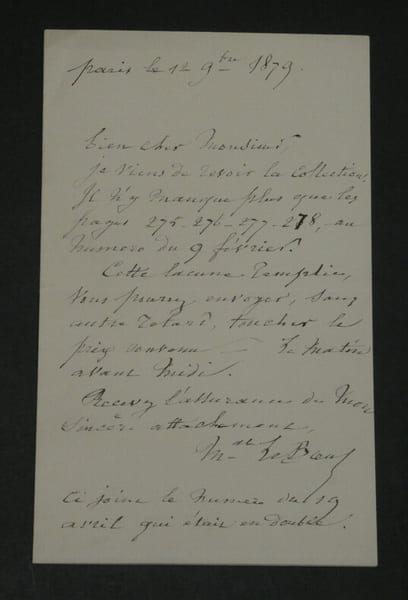 Paris le 12 9bre 1879.
bien cher Monsieur,
je viens de revoir la Collection.
Il n'y manque plus que les
pages 275-276-277-278, au
numero du 9 février.
Cette lacune remplie,
vous pourrez envoyer, sans
autre retard, toucher le
prix convenu — le matin
avant midi.
Recevez l'assurance de mon
sincère attachement,
Mal Le Boeuf
Ci joint le numero du 19
avril qui était en double.